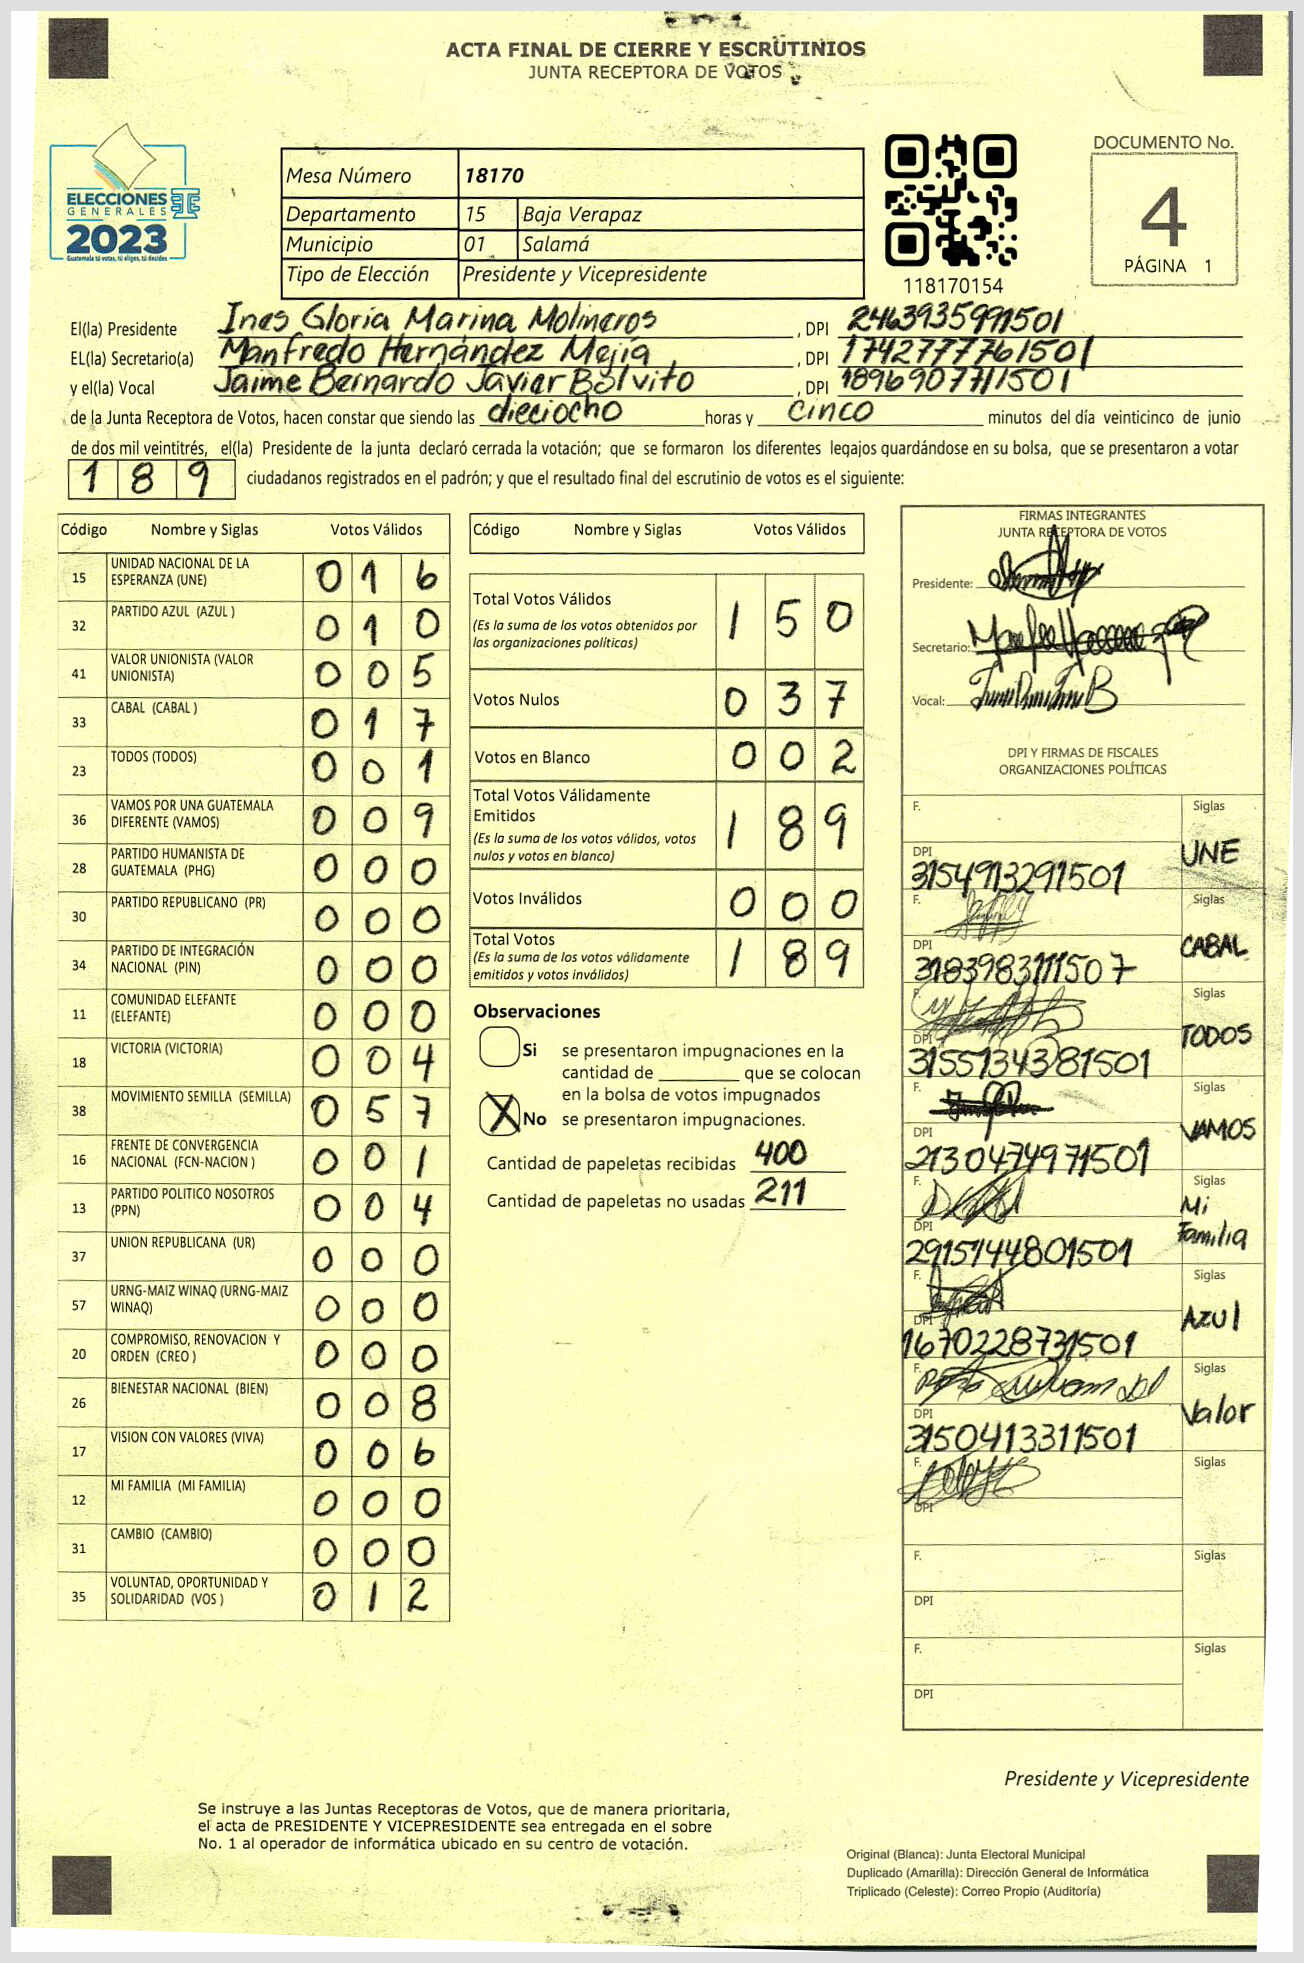 ACTA FINAL DE CIERRE Y ESCRUTINIOS
JUNTA RECEPTORA DE VOTOS
ELECCIONES
GENERALES
2023
Guatemala tú votas, tú eliges, tú decides
Mesa Número 18170
Departamento 15 Baja Verapaz
Municipio 01 Salamá
Tipo de Elección Presidente y Vicepresidente
118170154
DOCUMENTO No.
4
PÁGINA 1
El(la) Presidente Ines Gloria Marina Molineros, DPI 2463935991501
EL(la) Secretario(a) Manfredo Hernández Mejía, DPI 1742777761501
y el(la) Vocal Jaime Bernardo Javier Bolvito, DPI 1896907711501
de la Junta Receptora de Votos, hacen constar que siendo las dieciocho horas y cinco minutos del día veinticinco de junio
de dos mil veintitrés, el(la) Presidente de la junta declaró cerrada la votación; que se formaron los diferentes legajos guardándose en su bolsa, que se presentaron a votar
189 ciudadanos registrados en el padrón; y que el resultado final del escrutinio de votos es el siguiente:
Código Nombre y Siglas Votos Válidos
15 UNIDAD NACIONAL DE LA ESPERANZA (UNE) 016
32 PARTIDO AZUL (AZUL ) 010
41 VALOR UNIONISTA (VALOR UNIONISTA) 005
33 CABAL (CABAL ) 017
23 TODOS (TODOS) 001
36 VAMOS POR UNA GUATEMALA DIFERENTE (VAMOS) 009
28 PARTIDO HUMANISTA DE GUATEMALA (PHG) 000
30 PARTIDO REPUBLICANO (PR) 000
34 PARTIDO DE INTEGRACIÓN NACIONAL (PIN) 000
11 COMUNIDAD ELEFANTE (ELEFANTE) 000
18 VICTORIA (VICTORIA) 004
38 MOVIMIENTO SEMILLA (SEMILLA) 057
16 FRENTE DE CONVERGENCIA NACIONAL (FCN-NACION ) 001
13 PARTIDO POLITICO NOSOTROS (PPN) 004
37 UNION REPUBLICANA (UR) 000
57 URNG-MAIZ WINAQ (URNG-MAIZ WINAQ) 000
20 COMPROMISO, RENOVACION Y ORDEN (CREO ) 000
26 BIENESTAR NACIONAL (BIEN) 008
17 VISION CON VALORES (VIVA) 006
12 MI FAMILIA (MI FAMILIA) 000
31 CAMBIO (CAMBIO) 000
35 VOLUNTAD, OPORTUNIDAD Y SOLIDARIDAD (VOS ) 012
Código Nombre y Siglas Votos Válidos
Total Votos Válidos 150
(Es la suma de los votos obtenidos por
las organizaciones políticas)
Votos Nulos 037
Votos en Blanco 002
Total Votos Válidamente
Emitidos 189
(Es la suma de los votos válidos, votos
nulos y votos en blanco)
Votos Inválidos 000
Total Votos 189
(Es la suma de los votos válidamente
emitidos y votos inválidos)
Observaciones
Si se presentaron impugnaciones en la
cantidad de ________ que se colocan
en la bolsa de votos impugnados
X No se presentaron impugnaciones.
Cantidad de papeletas recibidas 400
Cantidad de papeletas no usadas 211
FIRMAS INTEGRANTES
JUNTA RECEPTORA DE VOTOS
Presidente:
Secretario:
Vocal:
DPI Y FIRMAS DE FISCALES
ORGANIZACIONES POLÍTICAS
F. Siglas
DPI 3154913291501 UNE
F. Siglas
DPI 3183983111507 CABAL
F. Siglas
DPI 3155134381501 TODOS
F. Siglas
DPI 2130474971501 VAMOS
F. Siglas
DPI 2915144801501 Mi Familia
F. Siglas
DPI 1670228731501 Azul
F. Siglas
DPI 3150413311501 Valor
F. Siglas
DPI
F. Siglas
DPI
F. Siglas
DPI
Presidente y Vicepresidente
Se instruye a las Juntas Receptoras de Votos, que de manera prioritaria,
el acta de PRESIDENTE Y VICEPRESIDENTE sea entregada en el sobre
No. 1 al operador de informática ubicado en su centro de votación.
Original (Blanca): Junta Electoral Municipal
Duplicado (Amarilla): Dirección General de Informática
Triplicado (Celeste): Correo Propio (Auditoría)